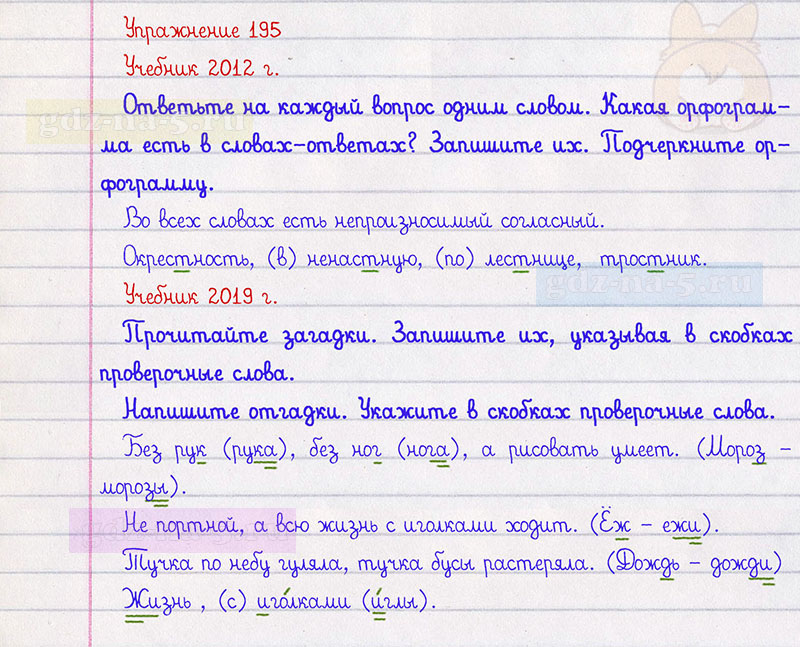 Упражнение 195
Учебник 2012 г.
Ответьте на каждый вопрос одним словом. Какая орфограм-
gdz-na-5.ru
ма есть в словах-ответах? Запишите их. Подчеркните ор-
фограмму.
Во всех словах есть непроизносимый согласный.
Окрестность, (в) ненастную, (по) лестнице, тростник.
gdz-na-5.ru
Учебник 2019 г.
Прочитайте загадки. Запишите их, указывая в скобках
проверочные слова.
Напишите отгадки. Укажите в скобках проверочные слова.
Без рук (рука), без ног (нога), а рисовать умеет. (Мороз –
морозы).
Не портной, а всю жизнь с иголками ходит. (Ёж – ежи).
Тучка по небу гуляла, тучка бусы растеряла. (Дождь – дожди)
Жизнь , (с) иго́лками (и́глы).